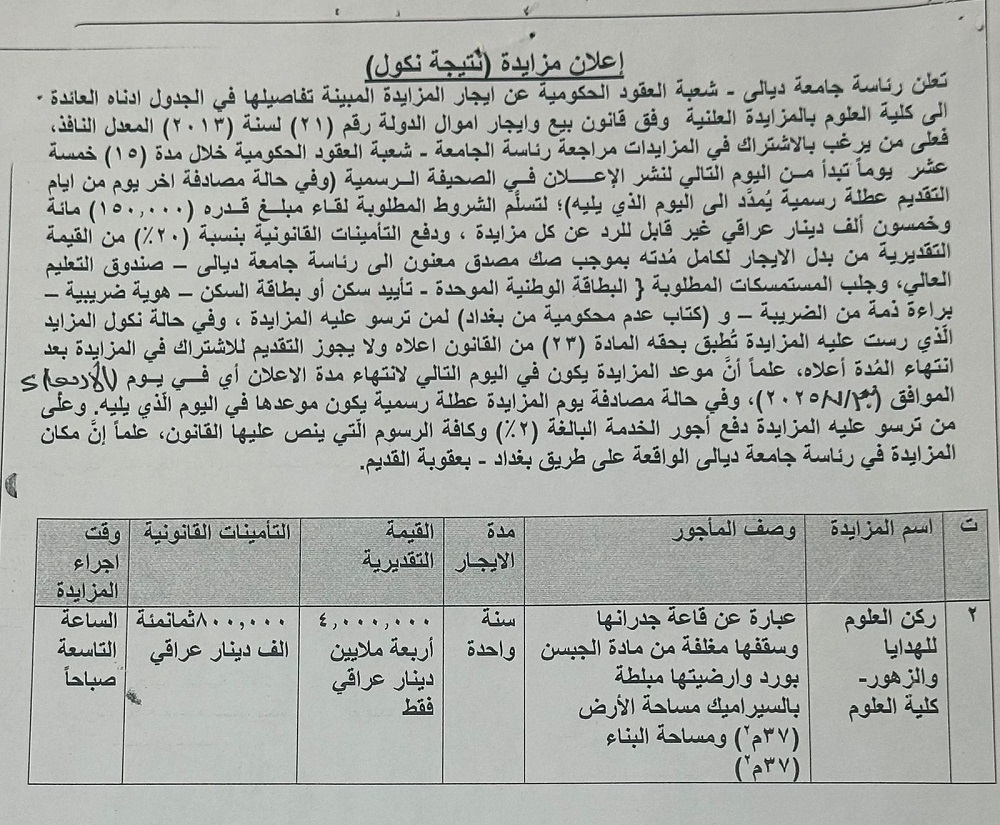 إعلان مزايدة (نتيجة نكول)
تعلن رئاسة جامعة ديالى - شعبة العقود الحكومية عن ايجار المزايدة المبينة تفاصيلها في الجدول ادناه العائدة
الى كلية العلوم بالمزايدة العلنية وفق قانون بيع وايجار اموال الدولة رقم (٢١) لسنة (٢٠١٣) المعدل النافذ،
فعلى من يرغب بالاشتراك في المزايدات مراجعة رئاسة الجامعة - شعبة العقود الحكومية خلال مدة (١٥) خمسة
عشر يوماً تبدأ مـن اليوم التالي لنشر الإعـــلان فـي الصحيفة الـرسمية (وفي حالة مصادفة اخر يوم من ايام
التقديم عطلة رسمية يُمدَّد الى اليوم الذي يليه)؛ لتسلّم الشروط المطلوبة لقاء مبلـغ قـدره (١٥٠,٠٠٠) مائة
وخمسون ألف دينار عراقي غير قابل للرد عن كل مزايدة ، ودفع التأمينات القانونية بنسبة (٢٠٪) من القيمة
التقديرية من بدل الايجار لكامل مُدته بموجب صك مصدق معنون الى رئاسة جامعة ديالى – صندوق التعليم
العالي، وجلب المستمسكات المطلوبة { البطاقة الوطنية الموحدة - تأييد سكن أو بطاقة السكن – هوية ضريبية –
براءة ذمة من الضريبة – و (كتاب عدم محكومية من بغداد) لمن ترسو عليه المزايدة ، وفي حالة نكول المزايد
الّذي رست عليه المزايدة تُطبق بحقه المادة (٢٣) من القانون اعلاه ولا يجوز التقديم للاشتراك في المزايدة بعد
انتهاء المُدة أعلاه، علماً أنَّ موعد المزايدة يكون في اليوم التالي لانتهاء مدة الاعلان أي فـــي يـــوم (الأربعاء)
الموافق ( / /٢٠٢٥)، وفي حالة مصادفة يوم المزايدة عطلة رسمية يكون موعدها في اليوم الّذي يليه. وعلى
من ترسو عليه المزايدة دفع أجور الخدمة البالغة (٢٪) وكافة الرسوم الّتي ينص عليها القانون، علماً إنَّ مكان
المزايدة في رئاسة جامعة ديالى الواقعة على طريق بغداد - بعقوبة القديم.
ت اسم المزايدة وصف المأجور مدة الايجار القيمة التقديرية التأمينات القانونية وقت اجراء المزايدة
٢ ركن العلوم للهدايا والزهور- كلية العلوم
عبارة عن قاعة جدرانها
وسقفها مغلفة من مادة الجبسن
بورد وارضيتها مبلطة
بالسيراميك مساحة الأرض
(٣٧م٢) ومساحة البناء
(٣٧م٢)
سنة
واحدة
٤,٠٠٠,٠٠٠
أربعة ملايين
دينار عراقي
فقط
٨٠٠,٠٠٠ثمانمئة
الف دينار عراقي
الساعة
التاسعة
صباحاً